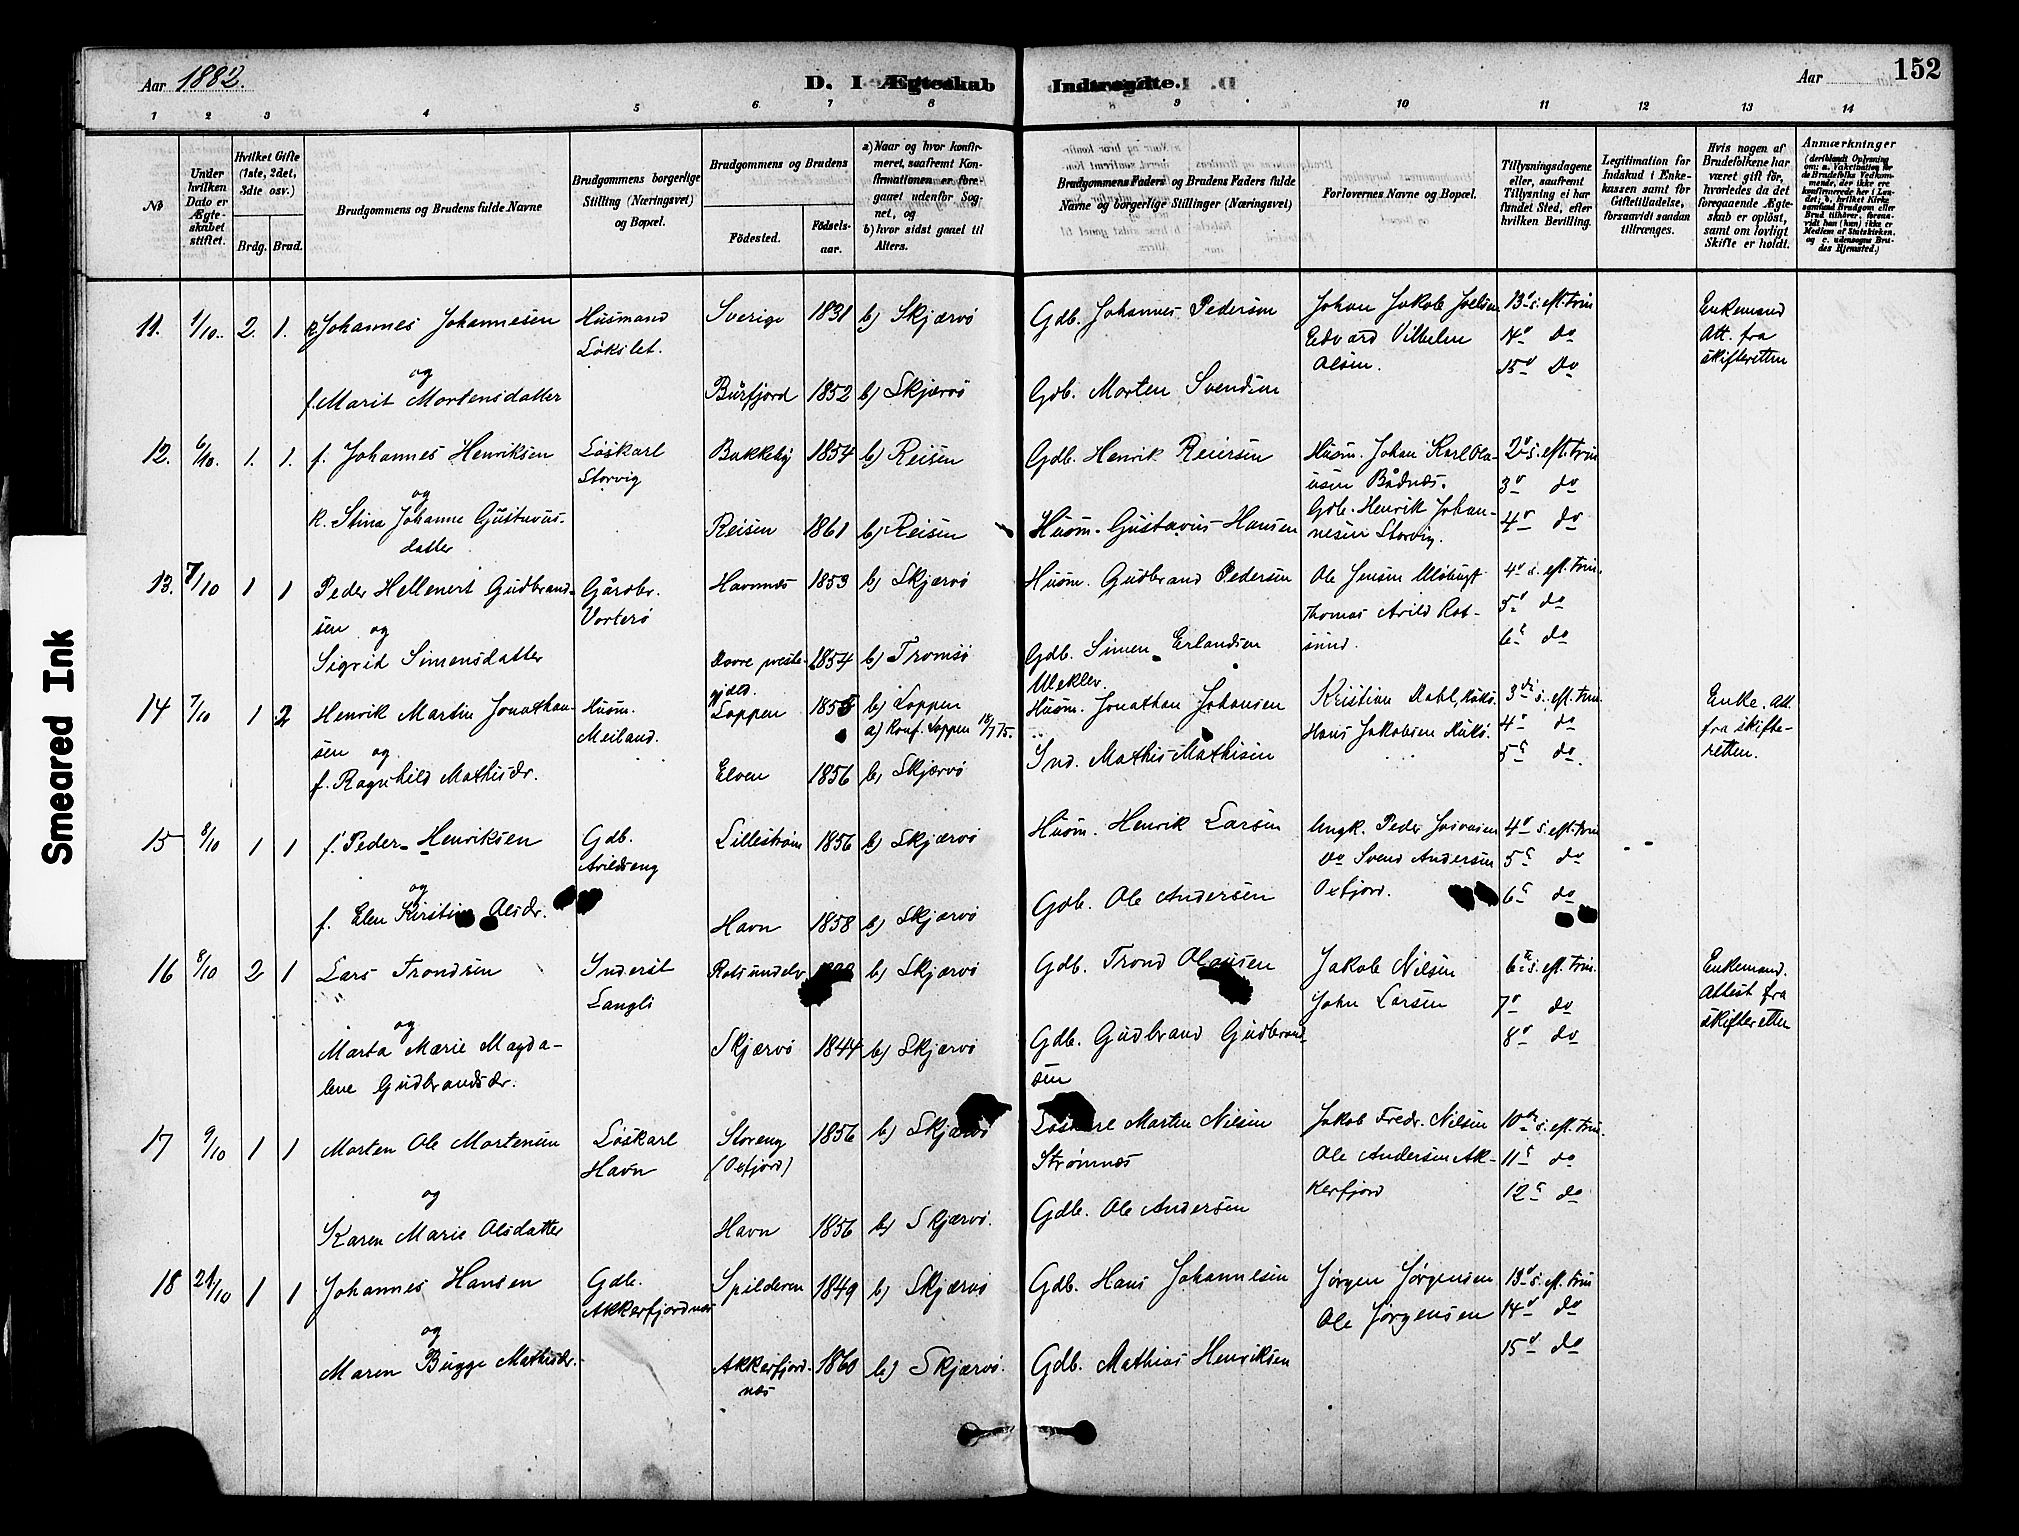 Aar 1882.
D. I Ægteskab Indtraadte.
Aar
152
1 2 3 4 5 6 7 8 9 10 11 12 13 14
No
Under hvilken Dato er Ægteskabet stiftet.
Hvilket Gifte (1ste, 2det, 3die osv.)
Brdg. Brud.
Brudgommens og Brudens fulde Navne
Brudgommens borgerlige Stilling (Næringsvei) og Bopæl.
Brudgommens og Brudens
Fødested.
Fødselsaar.
a) Naar og hvor konfirmeret, saafremt Konfirmationen er foregaaet udenfor Sognet, og
b) hvor sidst gaaet til Alters.
Brudgommens Faders og Brudens Faders fulde Navne og borgerlige Stillinger (Næringsvei)
Forlovernes Navne og Bopæl.
Tillysningsdagene eller, saafremt Tillysning ei har fundet Sted, efter hvilken Bevilling.
Legitimation for Indskud i Enkekassen samt for Giftetilladelse, forsaavidt saadan tiltrænges.
Hvis nogen af Brudefolkene har været gift før, hvorledes da det foregaaende Ægteskab er opløst, samt om lovligt Skifte er holdt.
Anmærkninger
11. 1/10. 2. 1. Johannes Johannesen Husmand Sverige 1831 b) Skjærvö Gdb. Johannes Pedersen Johan Jakob Joelsen 13d s. eft. Trin Enkemand
Løkslet. Edvard Vilhelm 14d do Att. fra
og Olsen. 15d Do skifteretten
f. Marit Mortensdatter Burfjord 1852 b) Skjærvö Gdb. Morten Svendsen
12. 6/10. 1. 1. f. Johannes Henriksen Løskarl Bakkeby 1854 b) Reisen Gdb. Henrik Reiersen Husm. Johan Karl Ola-
Storvig usen Bådnæs. 3d do
og Gdb. Henrik Johan-
k. Stina Johanne Gustavus- Reisen 1861 b) Reisen Husm. Gustavus Hansen nesen Storvig. 4d do
datter
13. 7/10 1 1 Peder Hellenert Gudbrand- Gårdbr. Havnnes 1853 b) Skjærvö Husm. Gudbrand Pedersen Ole Jensen 4d s. eft. Trin.
sen og Vorterö Thomas Arild Rot- 5d do
Sigrid Simensdatter Dovre preste- 1854 b) Tromsö Gdb. Simen Erlandsen sund. 6te do
gjeld.
14 7/10 1 2 Henrik Martin Jonathan- Husm. Loppen 1858 b) Loppen Husm. Jonathan Johansen Kristian Dahl, 3die s. eft. Trin Enke. Att.
sen og Meiland. a) Konf. Loppen 18/7 75. Hans Jakobsen 4d do fra skifte-
f. Ragnhild Mathisdr. Elven 1856 b) Skjærvö Ind. Mathis Mathisen 5te do. retten.
15 8/10 1 1 f. Peder Henriksen Gdb. Lillestrøm 1856 b) Skjærvö Husm. Henrik Larsen Ungk. Peder 4d s. eft. Trin
og Arildseng Do Svend Andersen 5te do
f. Elen Kirstine Olsdr. Havn 1858 b) Skjærvö Gdb. Ole Andersen Oxfjord. 6te do
16 8/10 2 1 Lars Trondsen Inderst Rotsundelv b) Skjærvö Gdb. Trond Olausen Jakob Nilsen 6te s. eft. Trin. Enkemand.
og Langli John Larsen 7d do Attest fra
Marta Marie Magda- Skjærvö 1844 b) Skjærvö Gdb. Gudbrand Gudbrand- 8d do skifteretten
lene Gudbrandsdr. sen
17 9/10 1 1 Morten Ole Mortensen Løskarl Storeng 1856 b) Skjærvö Løskarl Morten Nilsen Jakob Fredr. Nilsen 10de s. eft. Trin.
Havn (Oxfjord) Strömnæs Ole Andersen Ak- 11te do
og kerfjord 12te do
Karen Marie Olsdatter Havn 1856 b) Skjærvö. Gdb. Ole Andersen
18 21/10 1 1 Johannes Hansen Gdb. Spilderen 1849 b) Skjærvö Gdb. Hans Johannesen Jørgen Jørgensen 13d s. eft. Trin
og Akkerfjordnæs Ole Jørgensen 14d do
Maren Bugge Mathisdr. Akkerfjord- 1860 b) Skjærvö. Gdb. Mathias Henriksen 15d do
næs
Smeared Ink